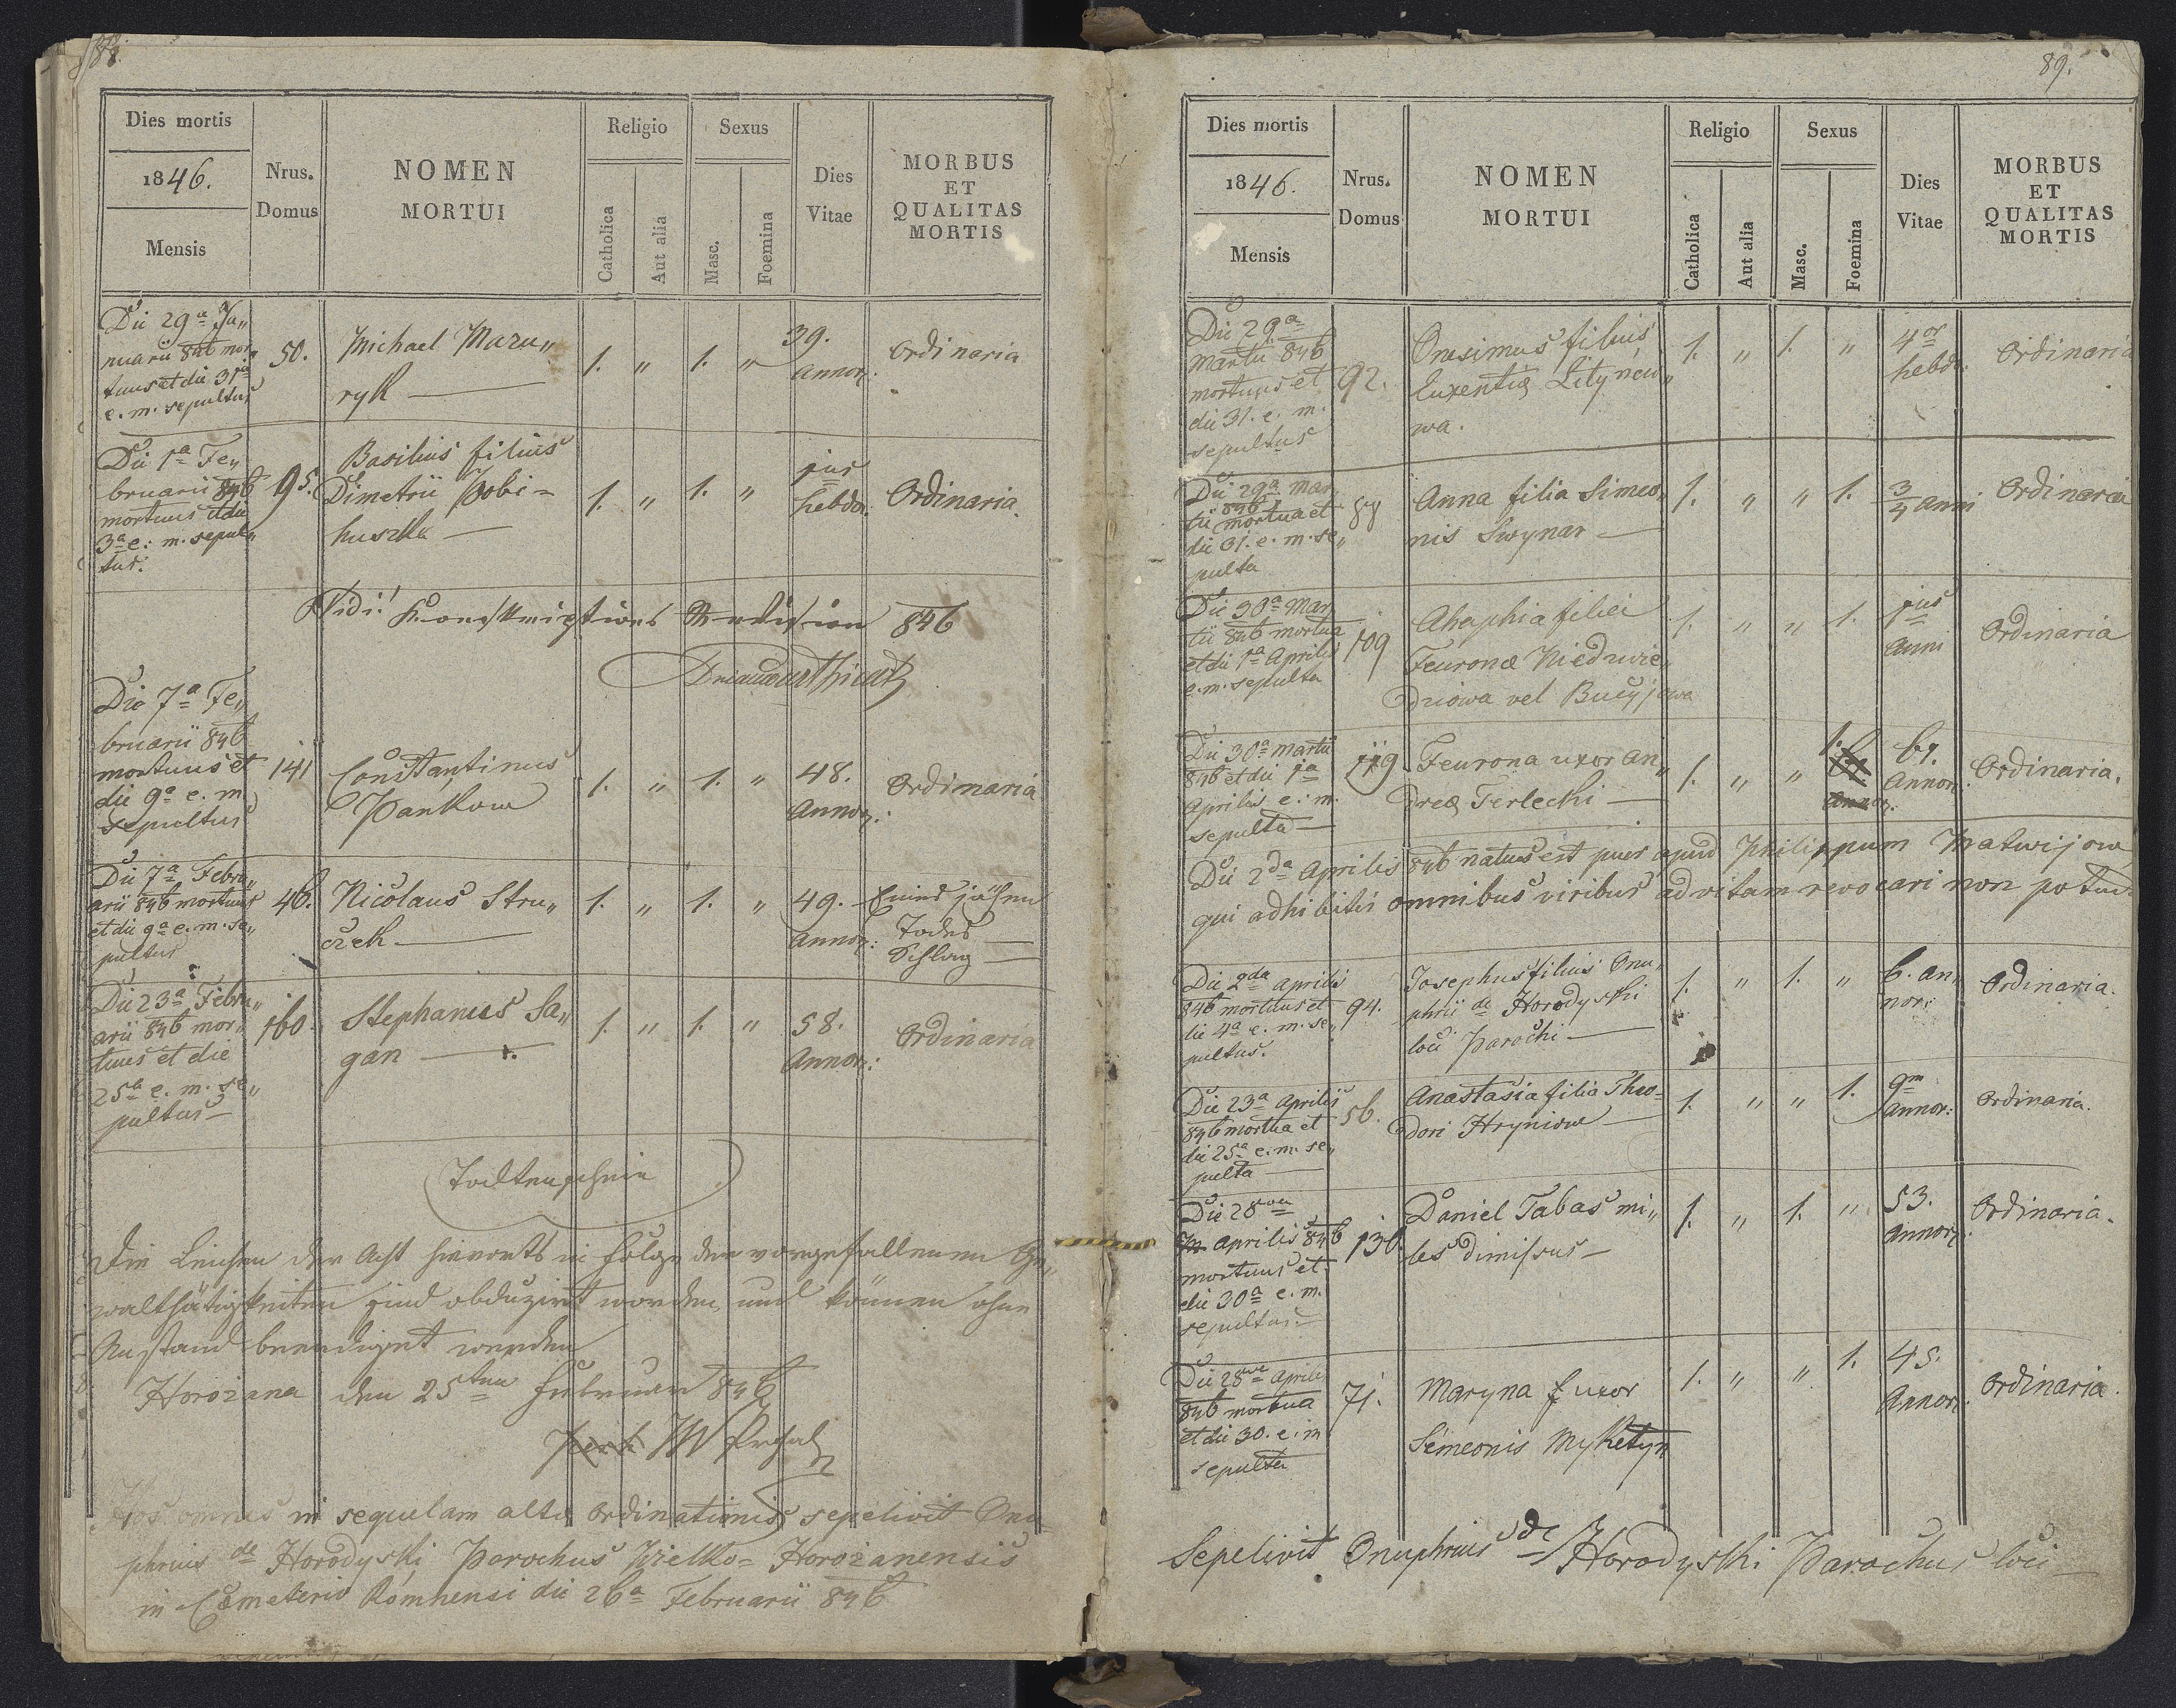 88.
Dies mortis
1846.
Mensis
Nrus.
Domus
NOMEN
MORTUI
Religio
Catholica
Aut alia
Sexus
Masc.
Foemina
Dies
Vitae
MORBUS
ET
QUALITAS
MORTIS
Die 29a Ja„
nuarii 846 mor„
tuus et die 31a
e. m. sepultus
50.
Michael Mazu„
ryk
1. „ 1. „
39.
Annor:
Ordinaria
Die 1a Fe„
bruarii 846
mortuus et die
3a e. m. sepul„
tus.
95.
Basilius filius
Dimetrii Pobi=
huszka
1. „ 1. „
hebdo:
Ordinaria.
Vidi! Konskriptions Revision 846
Die 7a Fe„
bruarii 846
mortuus et
die 9a e. m.
sepultus
141
Constantinus
Pankow
1. „ 1. „
48.
Annor:
Ordinaria
Die 7a Febru„
arii 846 mortuus
et die 9a e. m. se„
pultus
46.
Nicolaus Stru„
czek
1. „ 1. „
49.
Annor:
Todes
Schlag
Die 23a Febru„
arii 846 mor„
tuus et die
25a e. m. se„
pultus
160.
Stephanus Sa„
gan
1. „ 1. „
58.
Annor:
Ordinaria
Todtenschein
Die Leichen der Acht hierorts in Folge der vorgefallenen Ge„
waltthätigkeiten sind obduzirt worden, und können ohne
Anstand beerdiget werden
Horożana den 25ten Februar 846
Hos omnes in sequelam altae ordinationis sepelivit Onu=
phrius de Horodyski Parochus Wielko= Horożanensis
in Caemeterio Romnensi die 26a Februarii 846
89.
Dies mortis
1846.
Mensis
Nrus.
Domus
NOMEN
MORTUI
Religio
Catholica
Aut alia
Sexus
Masc.
Foemina
Dies
Vitae
MORBUS
ET
QUALITAS
MORTIS
Die 29a
Martii 846
mortuus et
die 31. e. m.
sepultus
92.
Onesimus filius
Euxentiae Lityńcu„
wa.
1. „ 1. „
4or
hebdo:
Ordinaria
Die 29a Mar„
tii 846 mortua et
die 31. e. m. se„
pulta
88
Anna filia Simeo„
nis Swynar
1. „ „ 1.
3/4 Anni
Ordinaria
Die 30a Mar„
tii 846 mortua
et die 1a Aprilis
e. m. sepulta
109
Ahaphia filia
Feuronae Niedzwie„
dziowa vel Bucyjowa
1. „ „ 1.
1ius
Anni
Ordinaria
Die 30a Martii
846 et die 1a
Aprilis e. m.
sepulta
119
Feurona uxor An„
dreae Terlecki
1. „ „ 1.
64.
Annor:
Ordinaria.
Die 2da Aprilis 846 natus est puer apud Philippum Matwijow
qui adhibitis omnibus viribus ad vitam revocari non potuit
Die 2da Aprilis
846 mortuus et
die 4a e. m. se„
pultus.
94.
Josephus filius Onu„
phrii de Horodyski
loci Parochi
1. „ 1. „
6. an„
nor:
Ordinaria.
Die 23a Aprilis
846 mortua et
die 25a e. m. se„
pulta
56.
Anastasia filia Theo=
dori Hryniow
1. „ „ 1.
9m
annor:
Ordinaria.
Die 28va
Aprilis 846
mortuus et
die 30a e. m.
sepultus
130.
Daniel Tabas mi„
les dimissus
1. „ 1. „
53.
Annor:
Ordinaria.
Die 28va Aprilis
846 mortua
et die 30. e. m
sepulta
71.
Maryna uxor
Simeonis Myketyn
1. „ „ 1.
45.
Annor:
Ordinaria.
Sepelivit Onuphrius de Horodyski Parochus loci